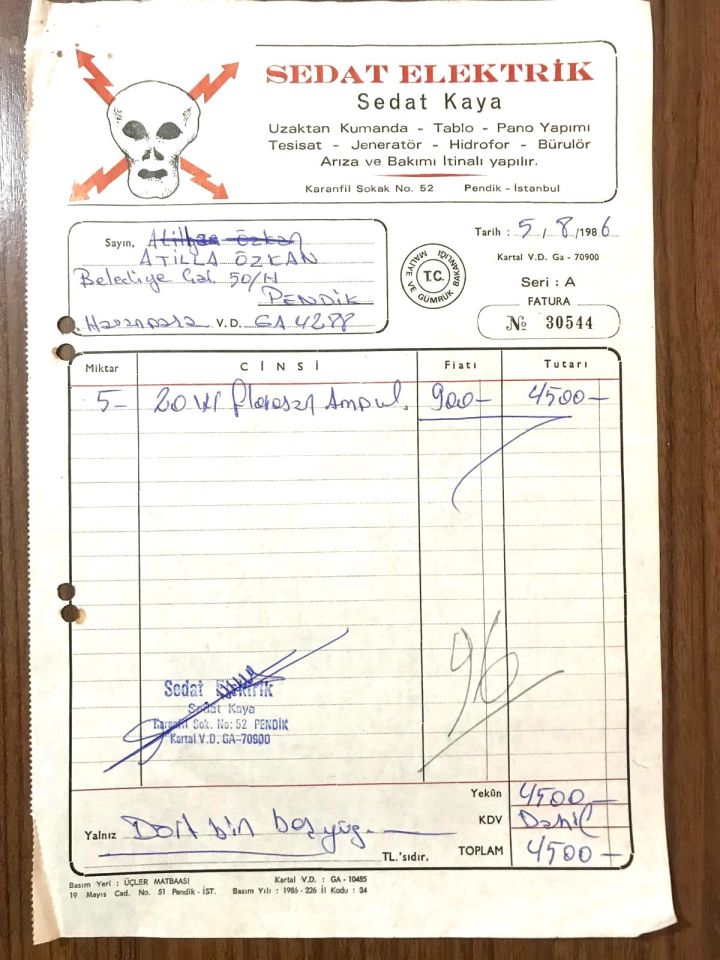 SEDAT ELEKTRİK
Sedat Kaya
Uzaktan Kumanda - Tablo - Pano Yapımı
Tesisat - Jeneratör - Hidrofor - Bürulör
Arıza ve Bakımı İtinalı yapılır.
Karanfil Sokak No. 52 Pendik - İstanbul
Sayın, Atilla Özkan
ATİLLA ÖZKAN
Belediye Cad. 50/H
PENDİK
Hasanpaşa V.D. GA 4288
Tarih : 5/8/1986
Kartal V.D. Ga - 70900
T.C.
MALİYE VE GÜMRÜK BAKANLIĞI
Seri : A
FATURA
№ 30544
Miktar CİNSİ Fiatı Tutarı
5- 20 W Floresan Ampul. 900- 4500-
96
Sedat Elektrik
Sedat Kaya
Karanfil Sok. No: 52 PENDİK
Kartal V.D. GA-70900
Yekûn 4500-
KDV Dahil
Yalnız Dört bin beşyüz.
TL.'sıdır. TOPLAM 4500-
Basım Yeri : ÜÇLER MATBAASI Kartal V.D. : GA - 10485
19 Mayıs Cad. No. 51 Pendik - İST. Basım Yılı : 1986 - 226 İl Kodu : 34